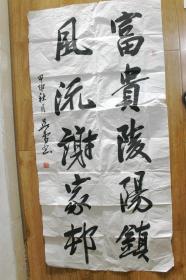 富貴陵陽鎮
風流謝家邨
甲申秋月